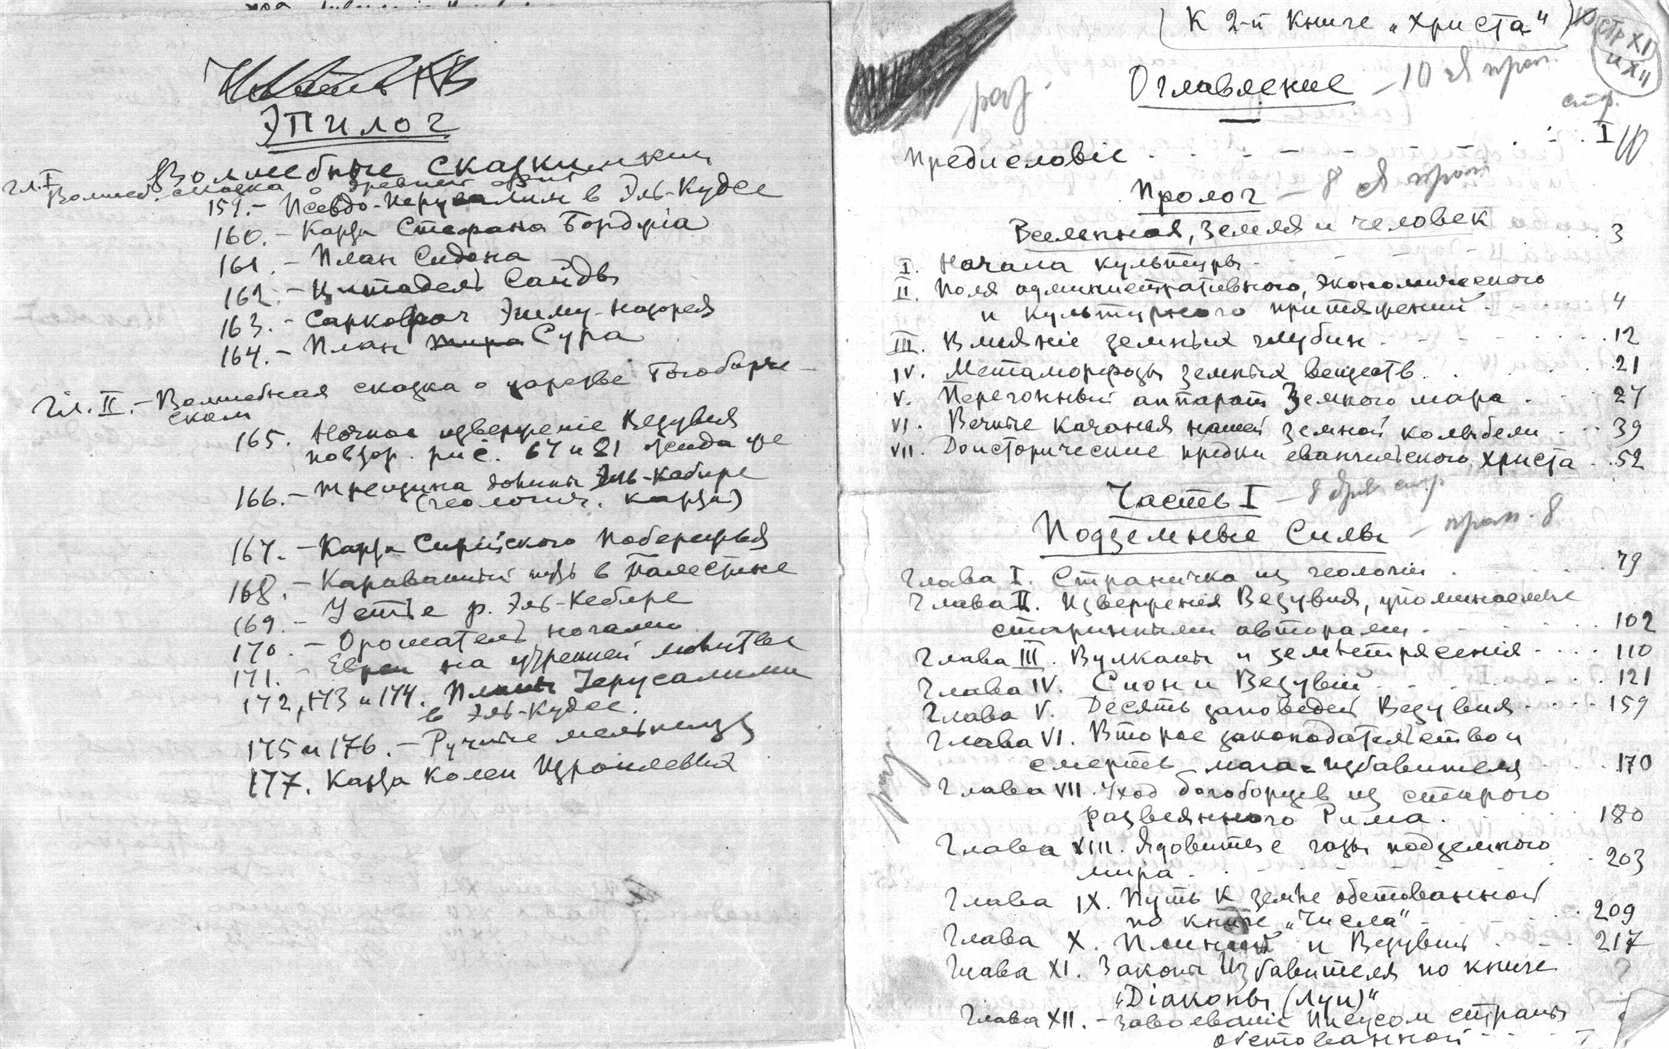 ЭПИЛОГ
Волшебные сказки
Гл. I Волшеб. сказка о древней
159. – Псевдо-Иерусалим в Эль-Кудсе
160. – Карта Стефана Борджiа
161. – План Сидона
162. – Цитадель Сайды
163. – Саркофаг Эшму-назорея
164. – План Сура
Гл. II. – Волшебная сказка о царстве Богоборче-
ском
165. Ночное извержение Везувия
повтор. рис. 67 и 81 сюда же
166. – Трещина долины Эль-Кебире
(геологич. карта)
167. – Карта Сирийского побережья
168. – Караванный путь в Палестине
169. – Устье р. Эль-Кебире
170. – Орошатель ногами
171. – Евреи на утренней молитве
172, 173 и 174. Iерусалима
в Эль-Кудсе.
175 и 176. – Ручные мельницы
177. Карта Колен Израилевых
(К 2-й Книге „Христа“)
стр XI
и XII
Оглавление – 10
раз.
стр.
Предисловiе . . . . I
Пролог – 8
Вселенная, Земля и человек 3
I. Начала культуры.
II. Поля административного, экономического
и культурного притяжений 4
III. Влиянiе земных глубин 12
IV. Метаморфозы земных веществ 21
V. Перегонный аппарат Земного шара 27
VI. Вечные Качания нашей земной колыбели 39
VII. Доисторические предки евангельского Христа 52
Часть I –
Подземные Силы – 8
Глава I. Страничка из геологiи 79
Глава II. Извержения Везувия, упоминаемые
старинными авторами 102
Глава III. Вулканы и землетрясения 110
Глава IV. Сион и Везувий 121
Глава V. Десять заповедей Везувия 159
Глава VI. Второе законодательство и
смерть мага-избавителя 170
Глава VII. Уход богоборцев из старого
развеянного Рима. 180
Глава XIII. Ядовитые газы подземного
мира. 203
Глава IX. Путь к земле обетованной
по книге „Числа“ 209
Глава X. Плиний и Везувий 217
Глава XI. Законы Избавителя по книге ?
„Дiаконы (Луи)“
Глава XII. – Завоеванiе Иисусом страны
обетованной